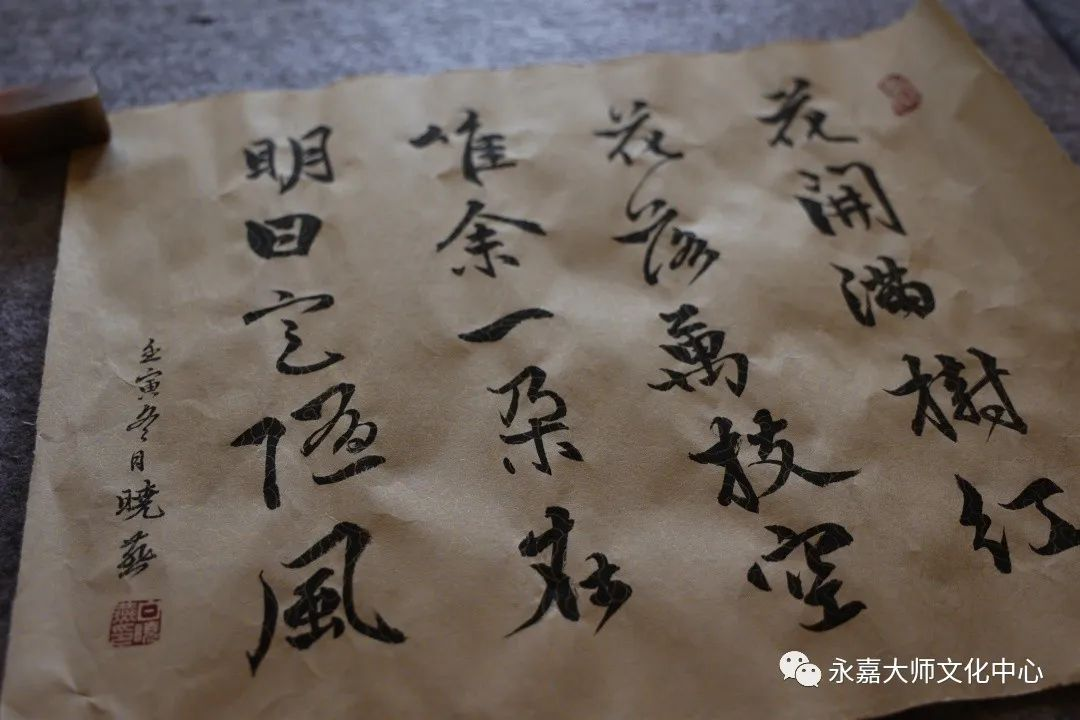 花開滿樹紅
花落萬枝空
唯余一朵在
明日定隨風
壬寅冬月曉燕
永嘉大师文化中心